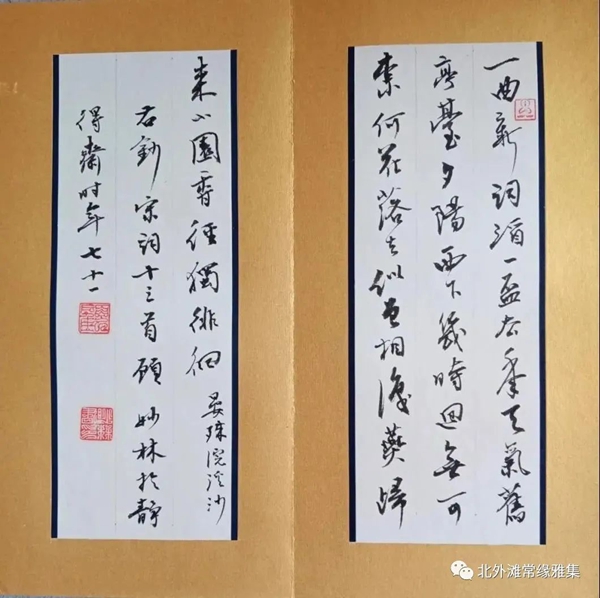 一曲新詞酒一盃去年天氣舊
亭臺夕陽西下幾時迴無可
柰何花落去似曾相識燕歸
來小園香徑獨徘徊 晏殊浣溪沙
右鈔宋詞十三首顧妙林於靜
得齋时年七十一
北外滩常缘雅集